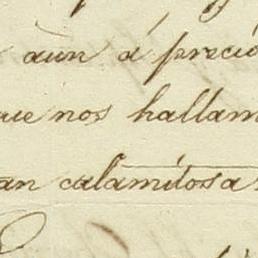 aùn á precio
ue nos hallam
an calamitosas